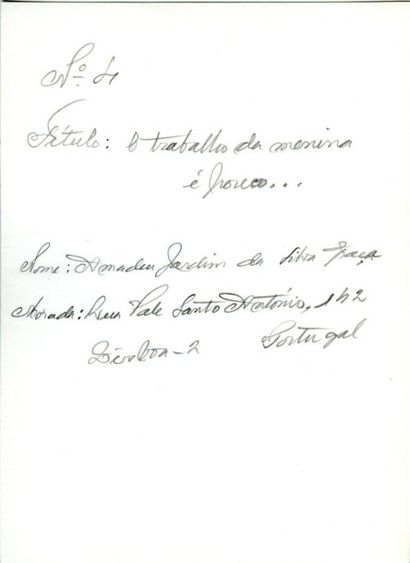 Nº 4
Título: O trabalho da menina
é pouco...
Nome: Amadeu Jardim da Silva Graça
Morada: Rua Vale Santo António, 142
Lisboa-2 Portugal